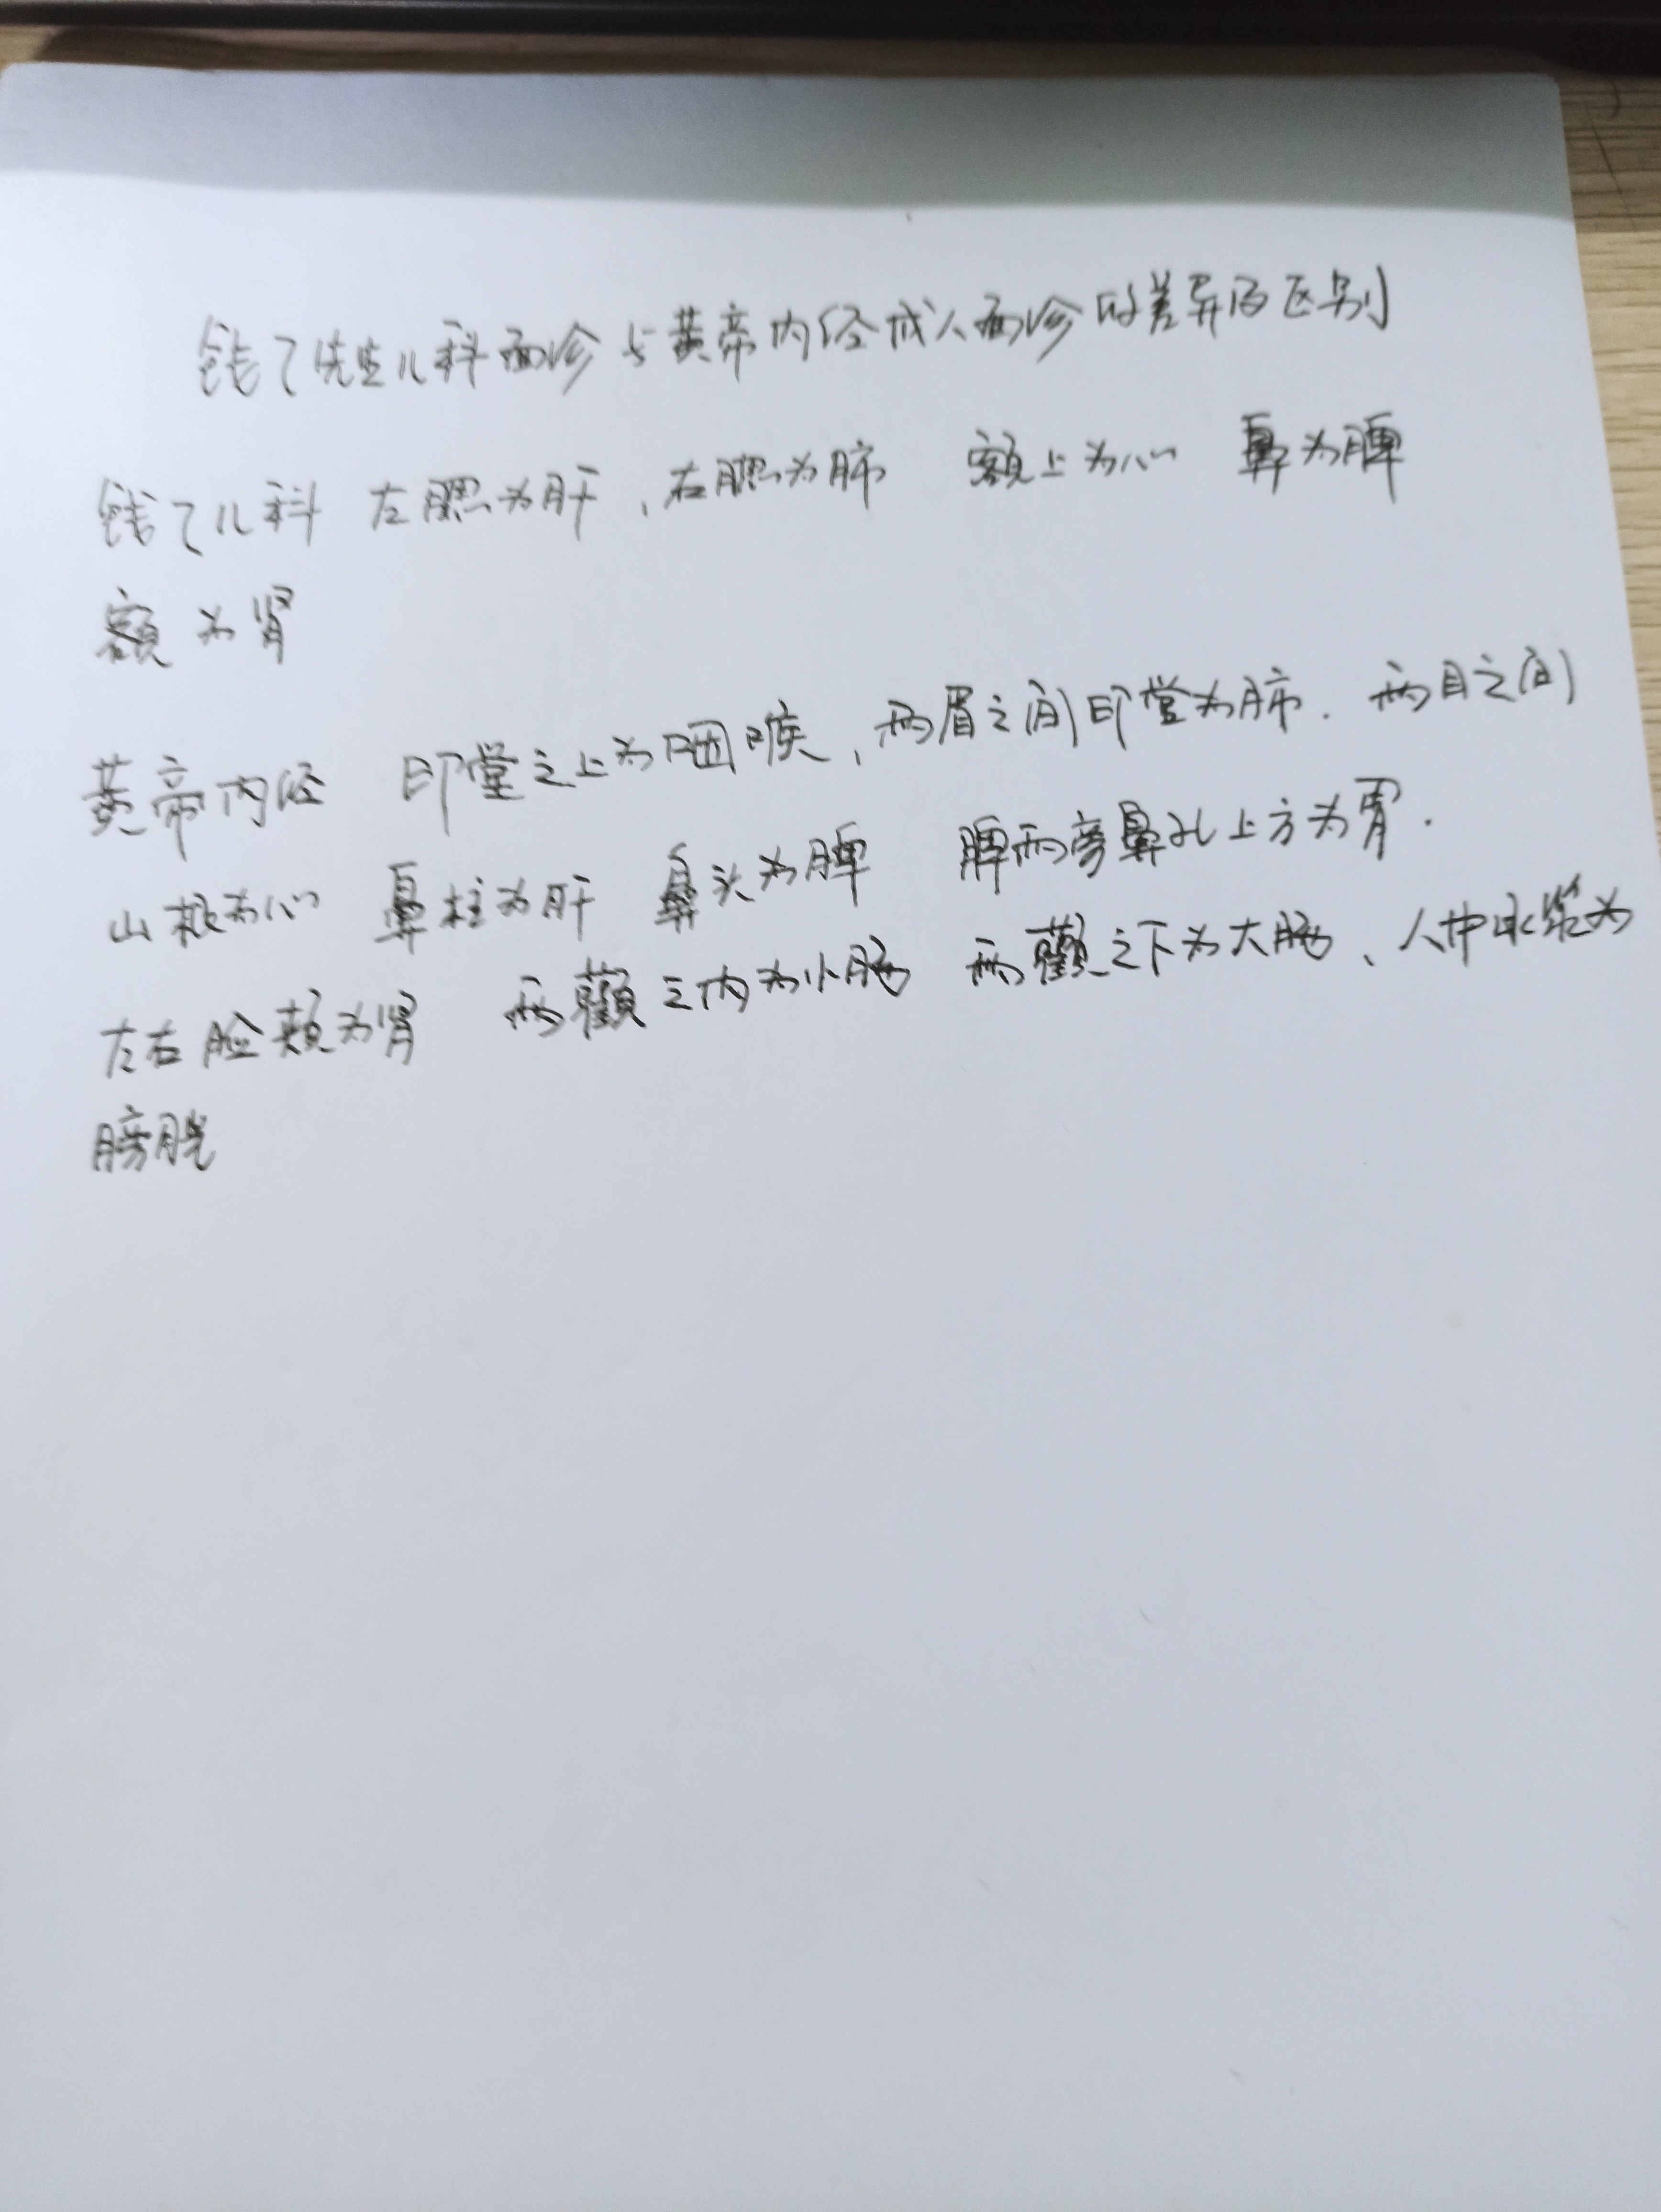 钱乙先生儿科面诊与黄帝内经成人面诊的差异及区别
钱乙儿科 左腮为肝，右腮为肺 额上为心 鼻为脾
额为肾
黄帝内经 印堂之上为咽喉，两眉之间印堂为肺．两目之间
山根为心 鼻柱为肝 鼻头为脾 脾两旁鼻孔上方为胃．
左右脸颊为肾 两颧之内为小肠 两颧之下为大肠、人中水沟为
膀胱